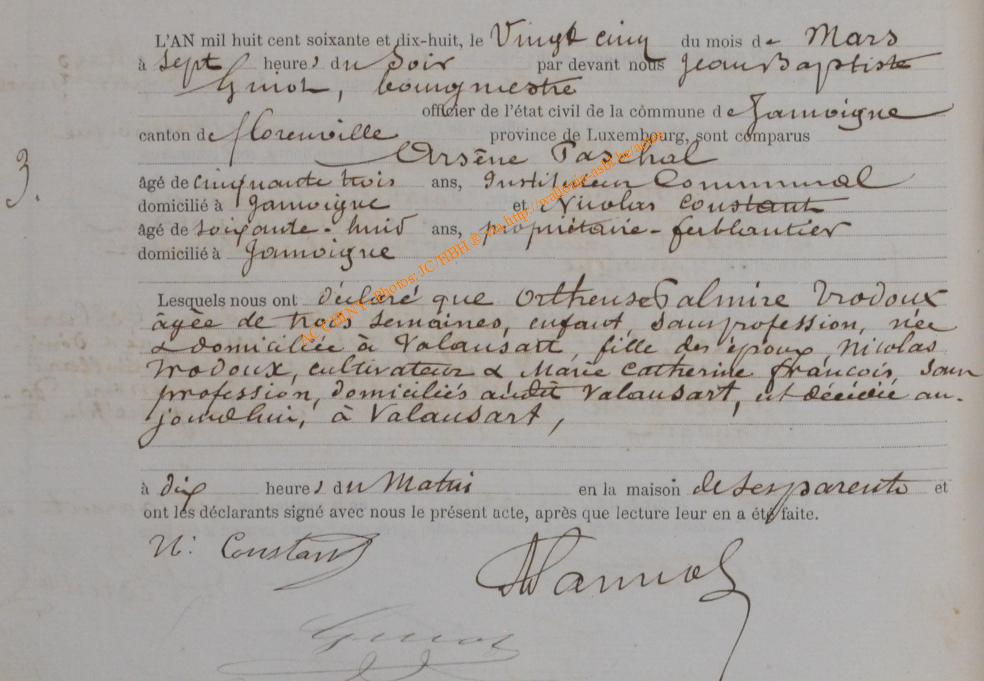 L'AN mil huit cent soixante et dix-huit, le Vingt cinq du mois de Mars
à Sept heures du Soir par devant nous Jean Baptiste
Guiot, bourgmestre
officier de l'état civil de la commune de Jamoigne
canton de florenville province de Luxembourg, sont comparus
Arsène Paschal
âgé de cinquante trois ans, Instituteur Communal
domicilié à Jamoigne et Nicolas Constant
âgé de soixante-huit ans, propriétaire-ferblantier
domicilié à Jamoigne
3.
Lesquels nous ont déclaré que Orthense Palmire Vrodoux
âgée de trois semaines, enfant, sans profession, née
& domiciliée à Valansart, fille des époux Nicolas
Vrodoux, cultivateur & Marie Catherine françois, sans
profession, domiciliés audit Valansart, est décédée au-
jourdhui, à Valansart,
à dix heures du Matin en la maison de ses parents et
ont les déclarants signé avec nous le présent acte, après que lecture leur en a été faite.
N. Constant
Guiot
Photos: JC/HBH © via http://wallonie-asbl.be/actes